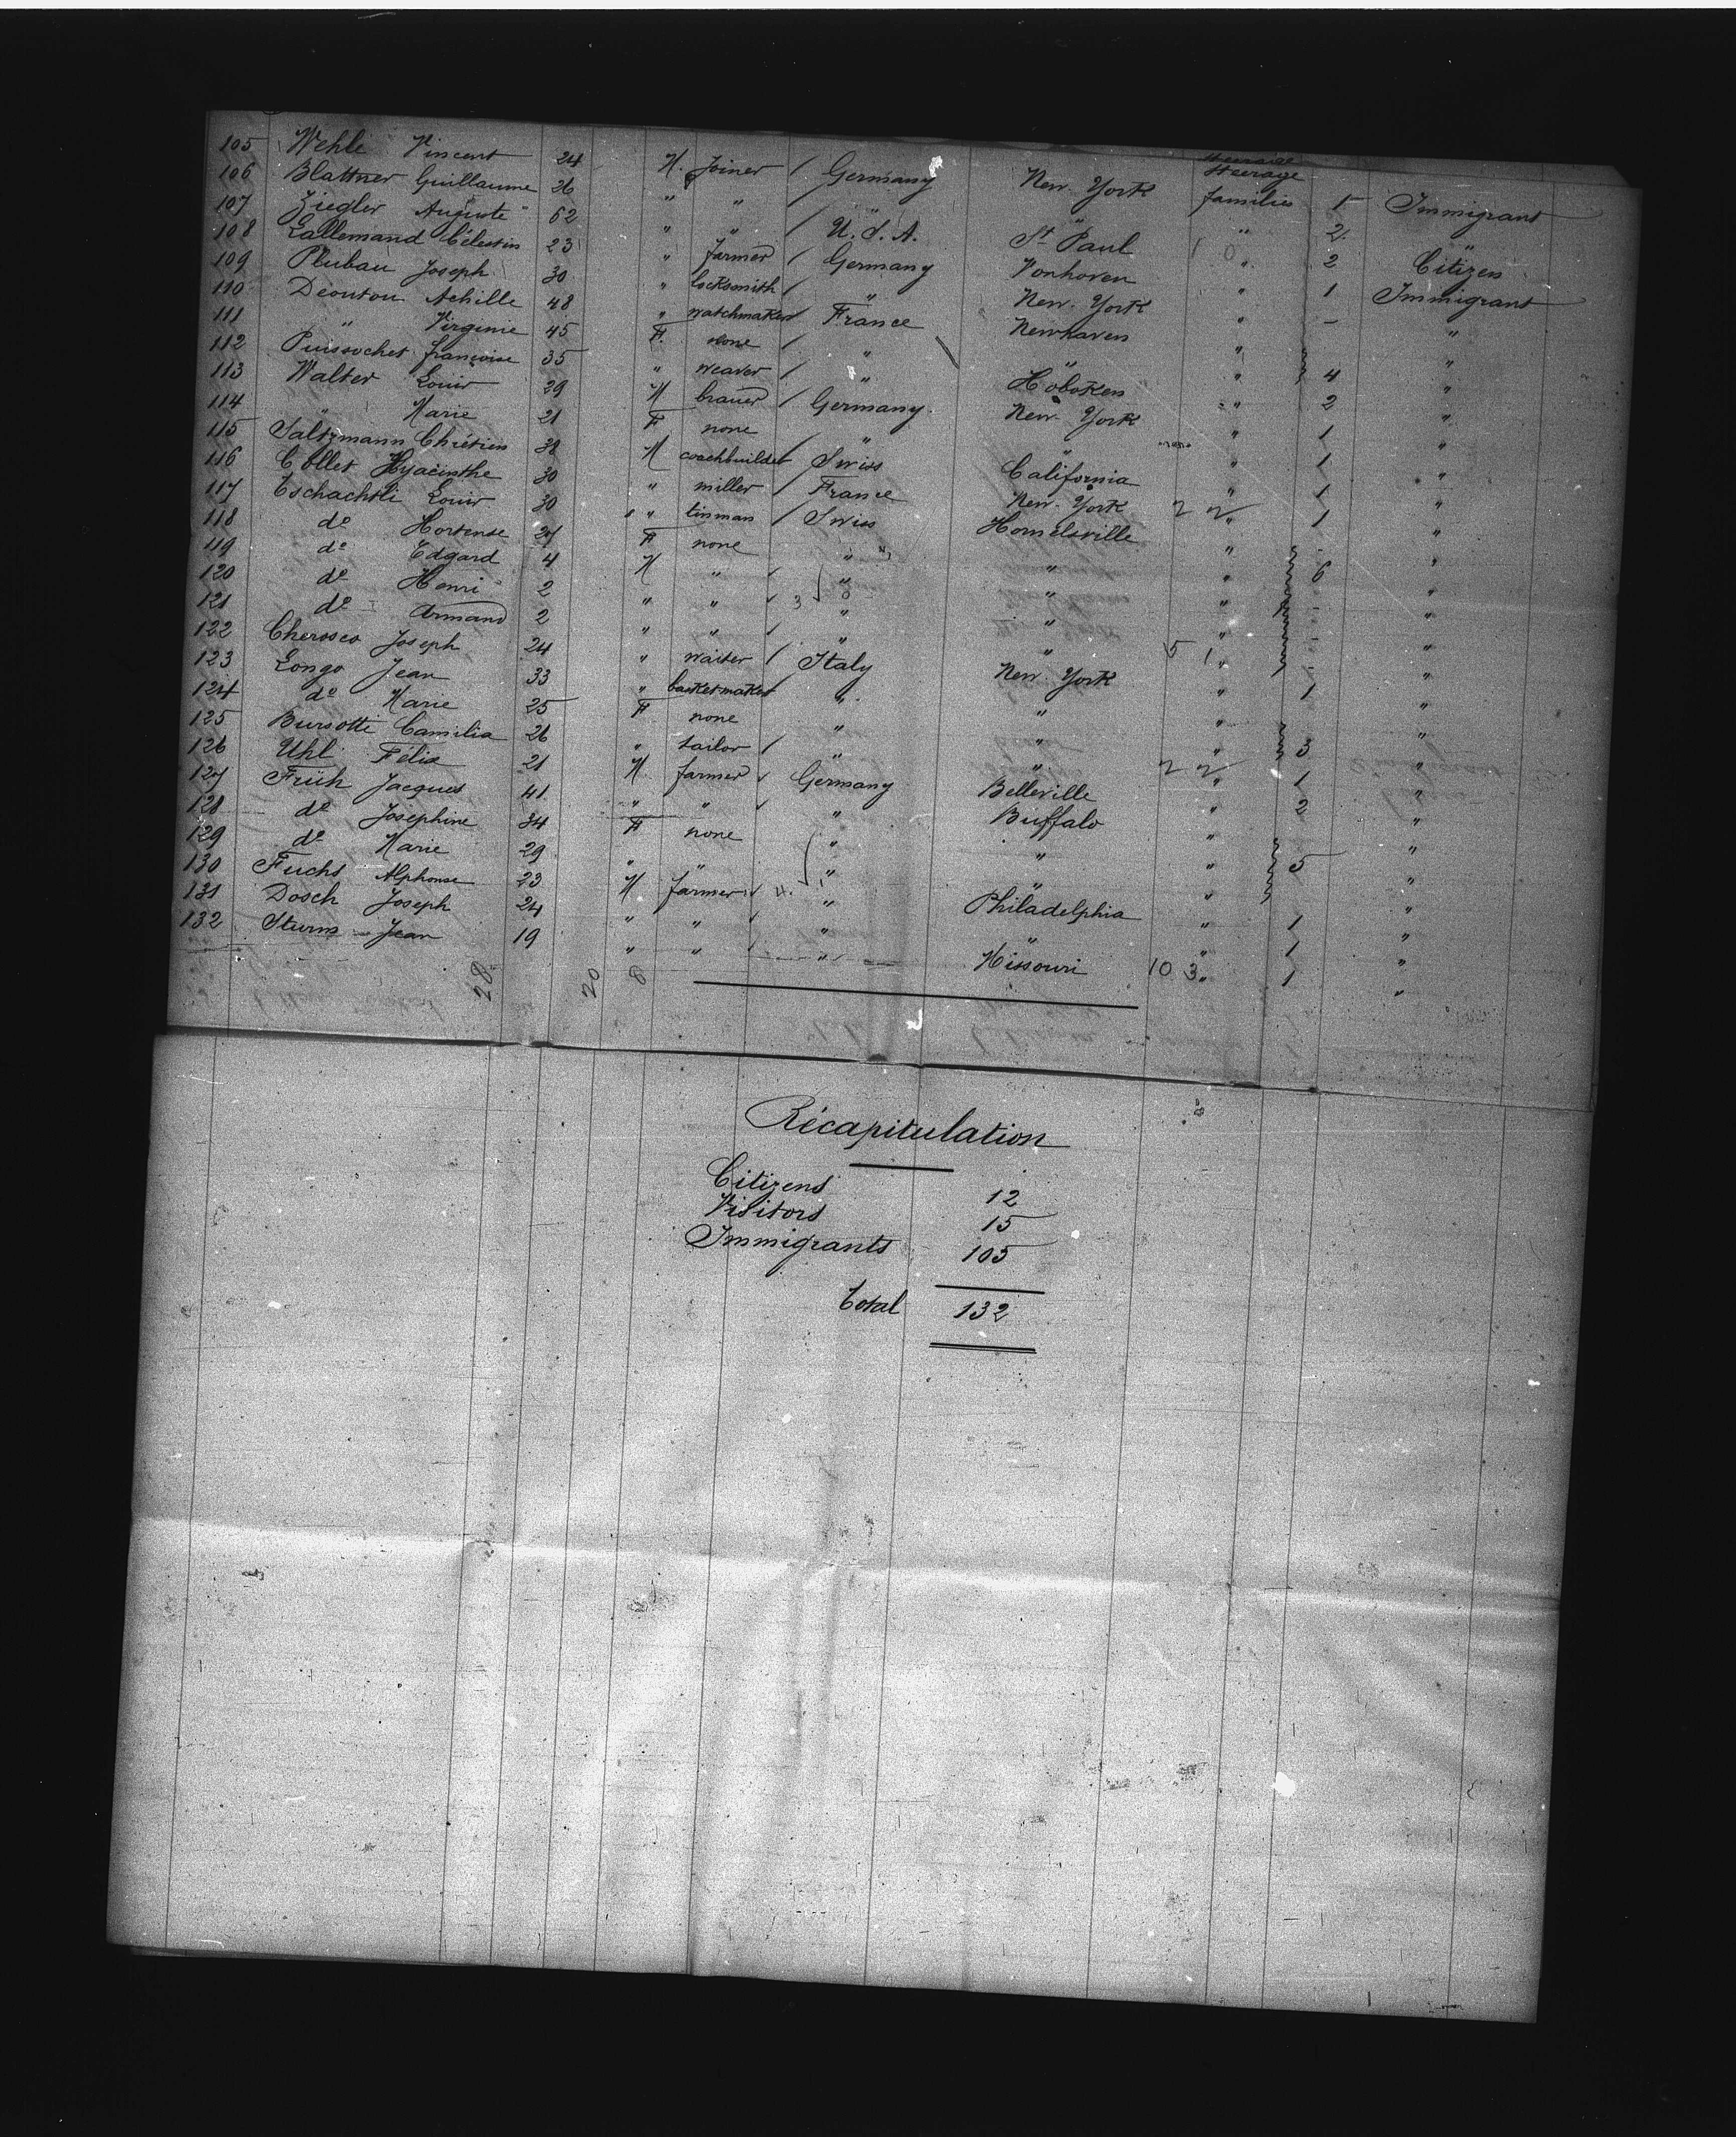 Steerage
105 Wehle Vincent 24 M. Joiner / Germany New-York Steerage families 1 Immigrant
106 Blattner Guillaume 26 " " / " " " 2 "
107 Ziegler Auguste 62 " " / U.S.A. St Paul " 2 Citizen
108 Lallemand Célestin 23 " farmer / Germany Vonhoven " 1 Immigrant
109 Plubau Joseph 30 " locksmith / " New-York " - "
110 Déoutou Achille 48 " watchmaker / France Newhaven " "
111 " Virginie 45 F. none / " " " 4 "
112 Puissochet françoise 35 " weaver / " Hoboken " 2 "
113 Walter Louis 29 M brauer / Germany. New-York " 1 "
114 " Marie 21 F none " " " 1 "
115 Saltzmann Chrétien 38 M coachbuilder / Swiss California " 1 "
116 Collet Hyacinthe 30 " miller / France New-York " 1 "
117 Tschachtli Louis 30 " tinman / Swiss Hornelsville " - "
118 do Hortense 27 F none " " " 6 "
119 do Edgard 4 M " " " " - "
120 do Henri 2 " " " " " - "
121 do Armand 2 " " " " " - "
122 Cherosco Joseph 24 " waiter / Italy New-York " 1 "
123 Longo Jean 33 " basketmaker / " " " "
124 do Marie 25 F none " " " 3 "
125 Bursotti Camilia 26 " tailor / " " " 1 "
126 Uhl Félix 21 M farmer Germany Belleville " 2 "
127 Früh Jacques 41 " " " Buffalo " "
128 do Josephine 34 F none " " " 5 "
129 do Marie 29 " " " " " "
130 Fuchs Alphonse 23 M farmer " Philadelphia " 1 "
131 Dosch Joseph 24 " " " " " 1 "
132 Sturm Jean 19 " " " Missouri 10 3 " 1 "
28 20 8
Récapitulation
Citizens 12
Visitors 15
Immigrants 105
Total 132